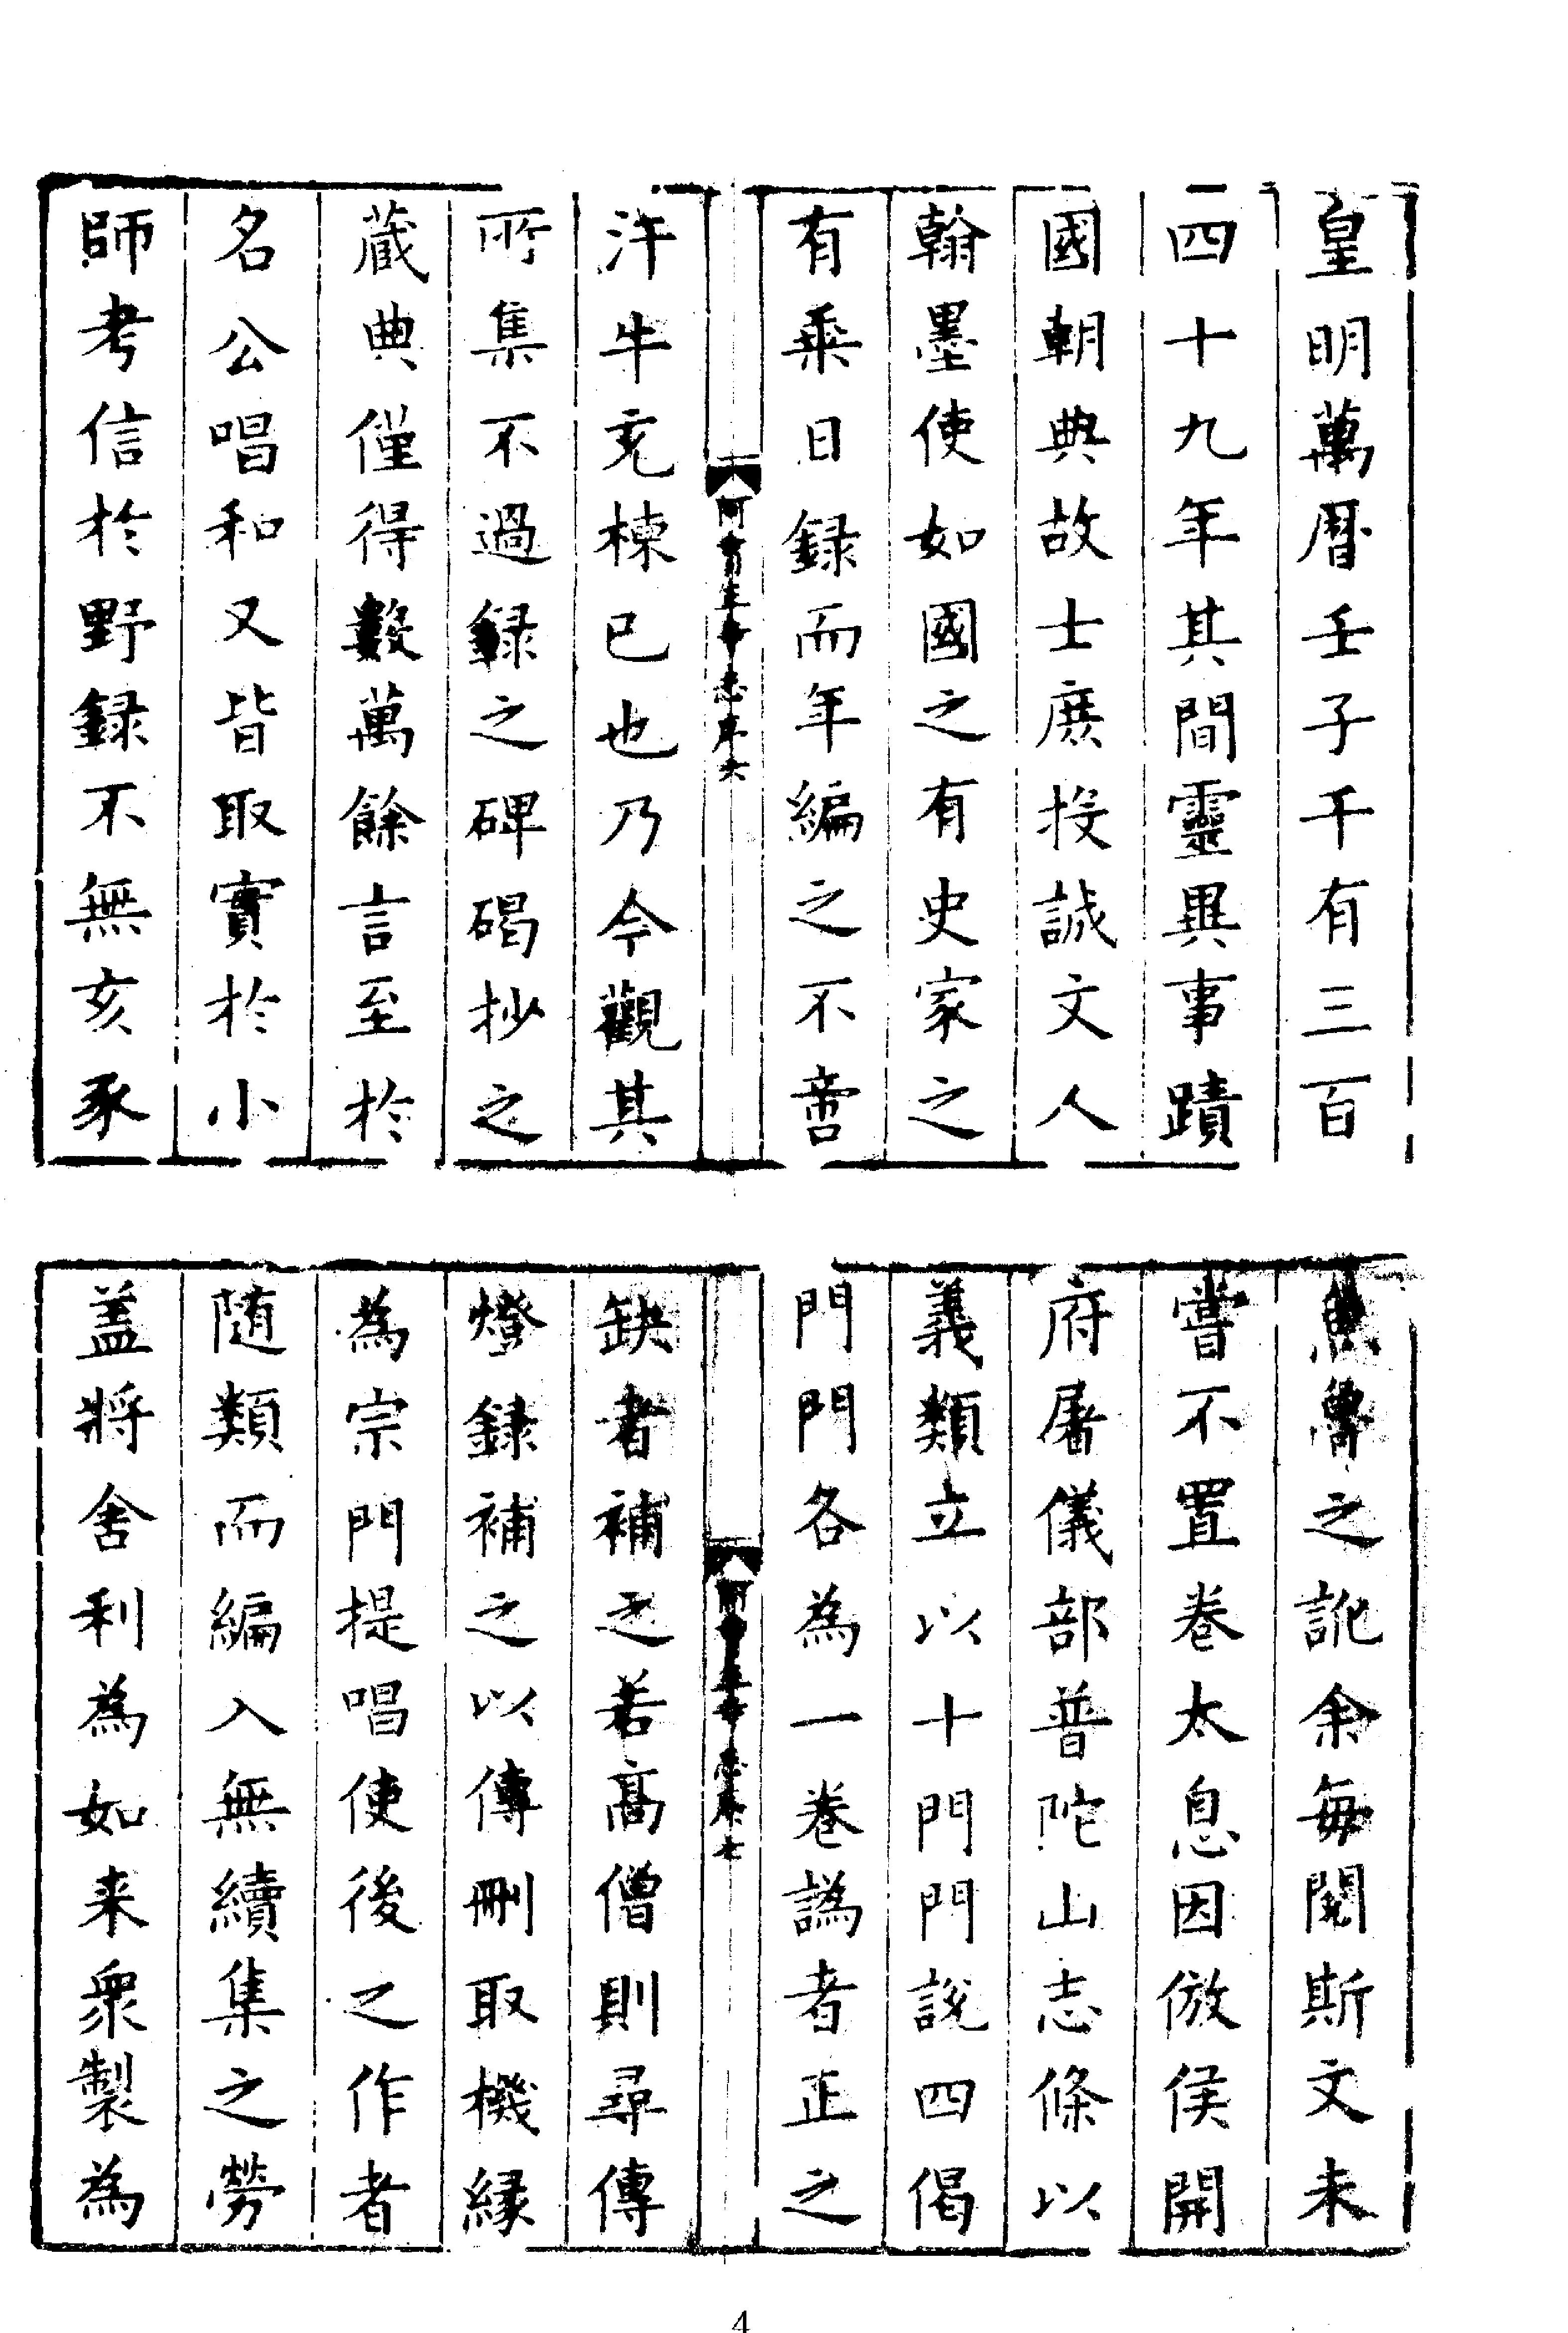 皇明萬曆壬子千有三百
四十九年其間靈異事蹟
國朝典故士庶投誠文人
翰墨使如國之有史家之
有乘日録而年編之不啻
汗牛充棟已也乃今觀其
所集不過録之碑碣抄之
蔵典僅得數萬餘言至於
名公唱和又皆取實於小
師考信於野録不無亥豕
魚魯之訛余每閱斯文未
嘗不置巻太息因倣侯開
府屠儀部普陀山志條以
義類立以十門門說四偈
門門各為一巻譌者正之
缺者補之若髙僧則尋傳
燈録補之以傳刪取機緣
為宗門提唱使後之作者
随類而編入無續集之勞
盖將舍利為如来衆製為
4